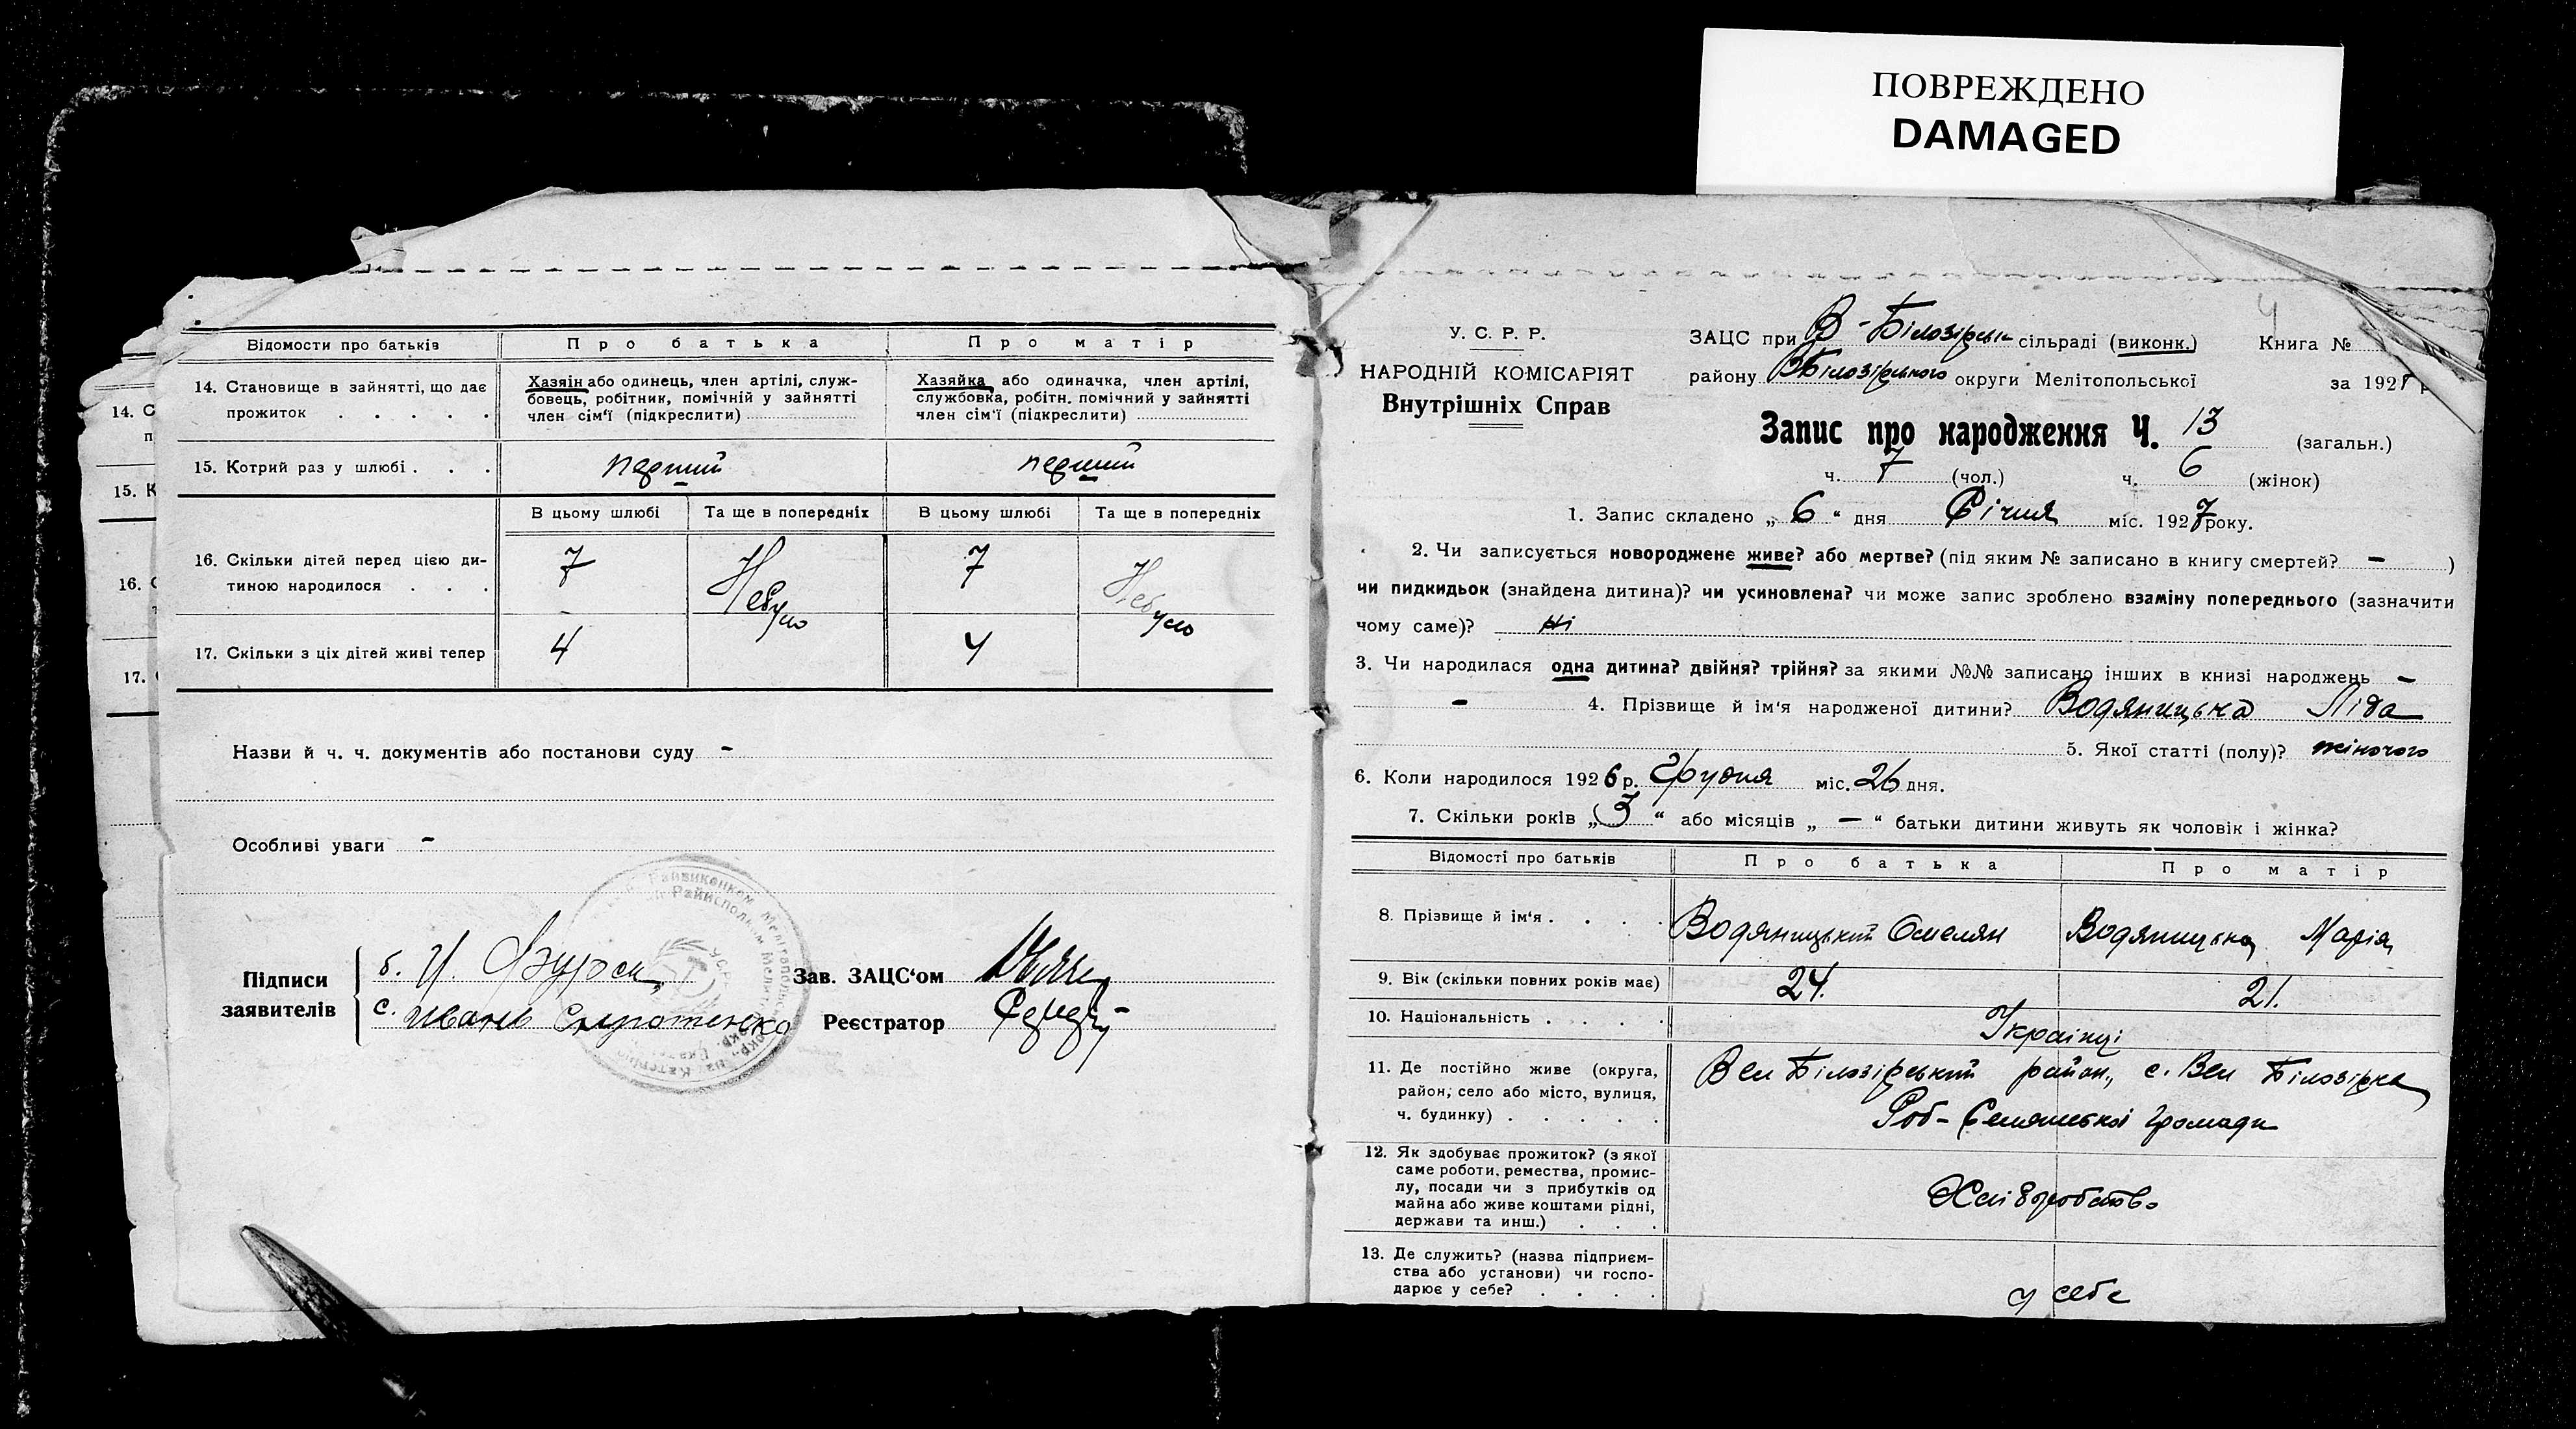 ПОВРЕЖДЕНО
DAMAGED
Відомости про батьків
Про батька
Про матір
14. Становище в зайнятті, що дає
прожиток . . . . .
Хазяін або одинець, член артілі, служ-
бовець, робітник, помічній у зайнятті
член сім'ї (підкреслити)
Хазяйка або одиначка, член артілі,
службовка, робітн. помічний у зайнятті
член сім'ї (підкреслити)
15. Котрий раз у шлюбі . . .
перший
перший
В цьому шлюбі
Та ще в попередніх
В цьому шлюбі
Та ще в попередніх
16. Скільки дітей перед цією ди-
тиною народилося . . .
7
Небуло
7
Небуло
17. Скільки з ціх дітей живі тепер
4
4
Назви й ч. ч. документів або постанови суду -
Особливі уваги -
Підписи
заявителів
б. И.
с. Иванъ
Зав. ЗАЦС'ом
Реєстратор
14. С
п
15. К
16. С
17.
У. С. Р. Р.
НАРОДНІЙ КОМІСАРІЯТ
Внутрішніх Справ
ЗАЦС при В-Білозірськ сільраді (виконк.)
Книга № 4
району ВБілозірського округи Мелітопольської
за 1927 р
Запис про народження Ч. 13 (загальн.)
ч. 7 (чол.) ч. 6 (жінок)
1. Запис складено „ 6 “ дня Січня міс. 1927 року.
2. Чи записується новороджене живе? або мертве? (під яким № записано в книгу смертей? - )
чи пидкидьок (знайдена дитина)? чи усиновлена? чи може запис зроблено взаміну попереднього (зазначити
чому саме)? ні
3. Чи народилася одна дитина? двійня? трійня? за якими №№ записано інших в книзі народжень -
- 4. Прізвище й ім'я народженої дитини? Водяницька Ліда
5. Якої статті (полу)? жіночого
6. Коли народилося 1926 р. Грудня міс. 26 дня.
7. Скільки років „ 3 “ або місяців „ — “ батьки дитини живуть як чоловік і жінка?
Відомості про батьків
Про батька
Про матір
8. Прізвище й ім'я . . . .
Водяницький Омелян
Водяницька Марія
9. Вік (скільки повних років має)
24.
21.
10. Національність . . . .
Українці
11. Де постійно живе (округа,
район, село або місто, вулиця,
ч. будинку) . . . . .
Вел Білозірський район., с. Вел Білозірка
Роб-Селянської громади
12. Як здобуває прожиток? (з якої
саме роботи, ремества, промис-
лу, посади чи з прибутків од
майна або живе коштами рідні,
держави та инш.) . . .
Хліборобство
13. Де служить? (назва підприєм-
ства або установи) чи госпо-
дарює у себе? . . . .
у себе